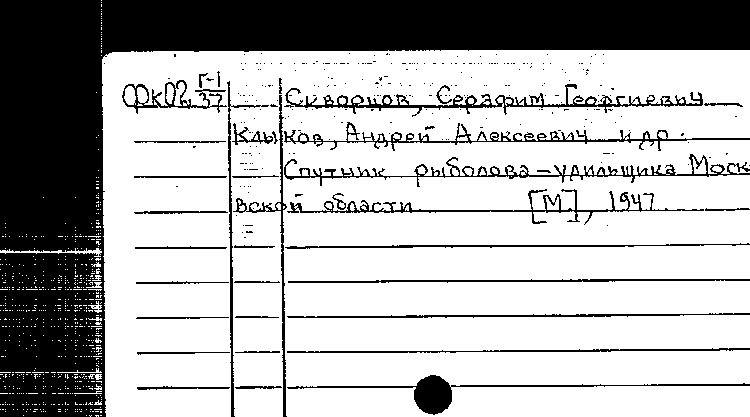 Г-1
37
Скворцов, Серафим Георгиевич
Клыков, Андрей Алексеевич и др.
Спутник рыболова-удильщика Моск
вской области [М], 1947.